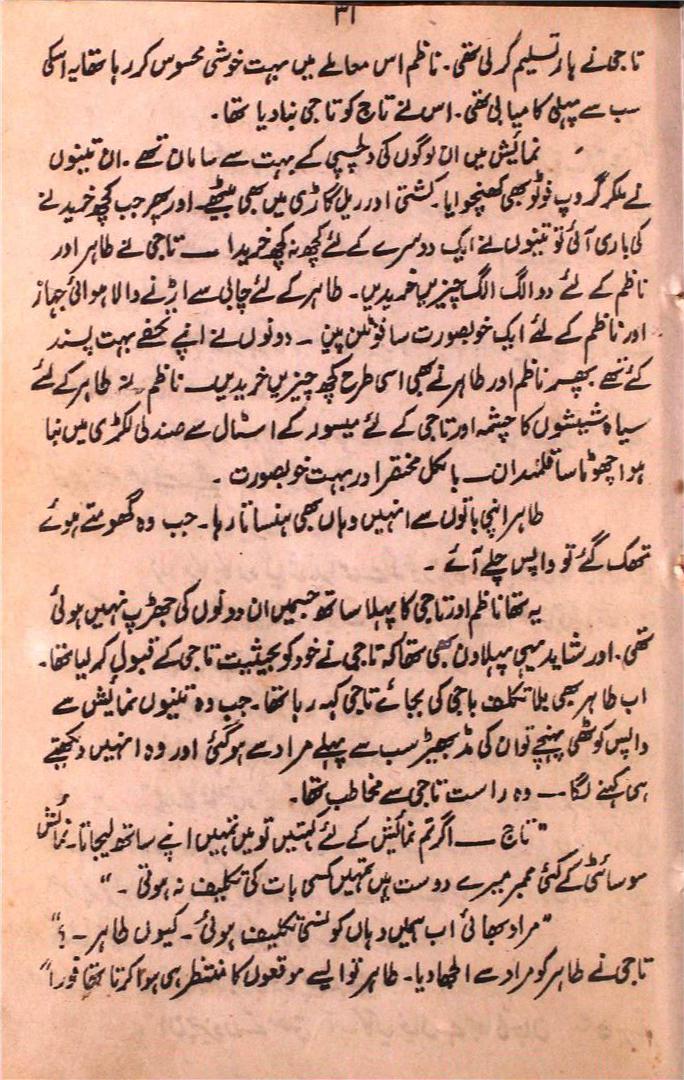 ۳۱
تاجی نے ہار تسلیم کر لی تھی۔ ناظم اس معاملے میں بہت خوشی محسوس کر رہا تھا یہ اسکی
سب سے پہلی کامیابی تھی۔ اس نے تاج کو تاجی بنا دیا تھا۔
نمائیش میں ان لوگوں کی دلچسپی کے بہت سے سامان تھے۔ ان تینوں
نے ملکر گروپ فوٹو بھی کھنچوایا۔ کشتی اور ریل گاڑی میں بھی بیٹھے۔ اور پھر جب کچھ خریدنے
کی باری آئی تو تینوں نے ایک دوسرے کے لئے کچھ نہ کچھ خریدا — تاجی نے طاہر اور
ناظم کے لئے دو الگ الگ چیزیں خریدیں۔ طاہر کے لئے چابی سے اڑنے والا ہوائی جہاز
اور ناظم کے لئے ایک خوبصورت سا فونٹن پین ۔ دونوں نے اپنے تحفے بہت پسند
کئے تھے پھر ناظم اور طاہر نے بھی اسی طرح کچھ چیزیں خریدیں ۔ ناظم نے طاہر کے لئے
سیاہ شیشوں کا چشمہ اور تاجی کے لئے میسور کے اسٹال سے صندلی لکڑی میں بنا
ہوا چھوٹا سا قلمدان — بالکل مختصر اور بہت خوبصورت ۔
طاہر اپنی باتوں سے انہیں وہاں بھی ہنساتا رہا۔ جب وہ گھومتے ہوئے
تھک گئے تو واپس چلے آئے ۔
یہ تھا ناظم اور تاجی کا پہلا ساتھ جسمیں ان دونوں کی جھڑپ نہیں ہوئی
تھی۔ اور شاید یہی پہلا دن بھی تھا کہ تاجی نے خود کو بحیثیت تاجی کے قبول کر لیا تھا۔
اب طاہر بھی بلا تکلف باجی کی بجائے تاجی کہہ رہا تھا۔ جب وہ تینوں نمائیش سے
واپس کوٹھی پہنچے تو ان کی مڈبھیڑ سب سے پہلے مراد سے ہو گئی اور وہ انہیں دیکھتے
ہی کہنے لگا — وہ راست تاجی سے مخاطب تھا۔
"تاج — اگر تم نمائیش کے لئے کہتیں تو میں تمہیں اپنے ساتھ لیجاتا۔ نمائش
سوسائٹی کے کئی ممبر میرے دوست ہیں تمہیں کسی بات کی تکلیف نہ ہوتی ۔"
"مراد بھائی اب ہمیں وہاں کونسی تکلیف ہوئی۔ کیوں طاہر ۔ ؟"
تاجی نے طاہر کو مراد سے الجھا دیا۔ طاہر تو ایسے موقعوں کا منتظر ہی ہوا کرتا تھا فوراً"